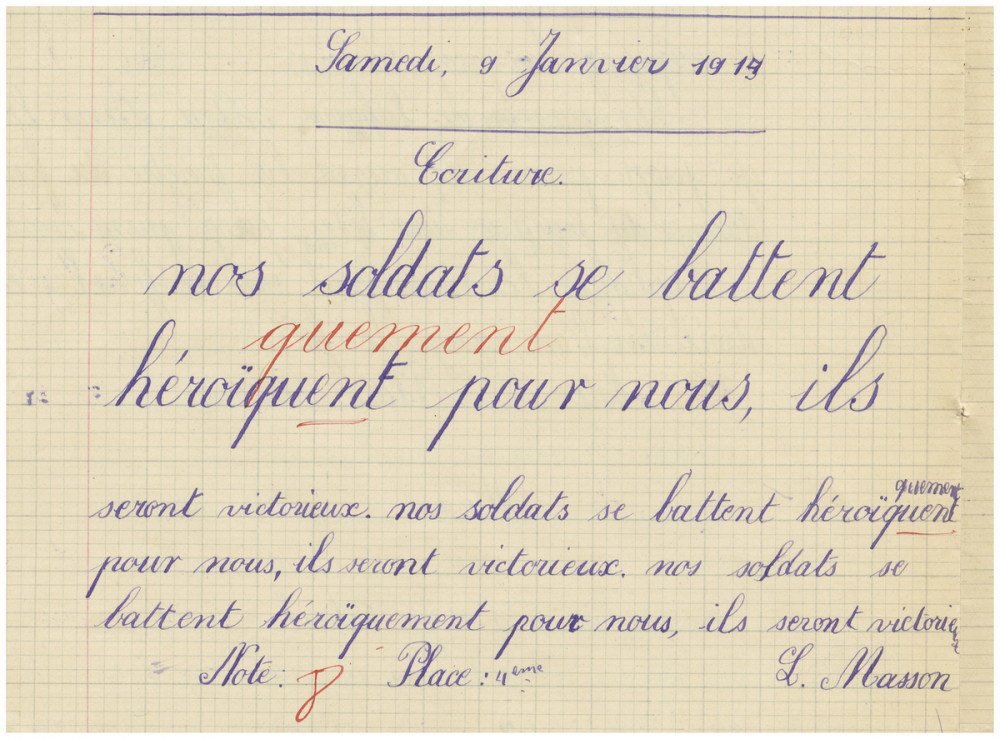 Samedi, 9 Janvier 1915
Ecriture.
nos soldats se battent
quement
héroïquent pour nous, ils
quement
seront victorieux. nos soldats se battent héroïquent
pour nous, ils seront victorieux. nos soldats se
battent héroïquement pour nous, ils seront victorieux
Note: 8 Place: 4eme L. Masson